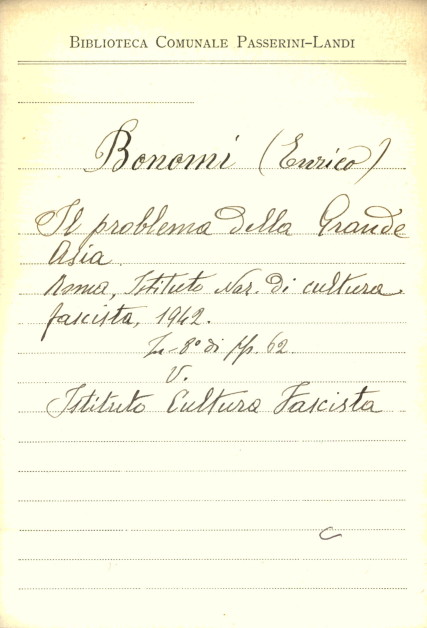 BIBLIOTECA COMUNALE PASSERINI-LANDI
Bonomi (Enrico)
Il problema della Grande
Asia.
Roma, Istituto Naz. di cultura
fascista, 1942.
In-8° di pp. 62.
V.
Istituto Cultura Fascista
C